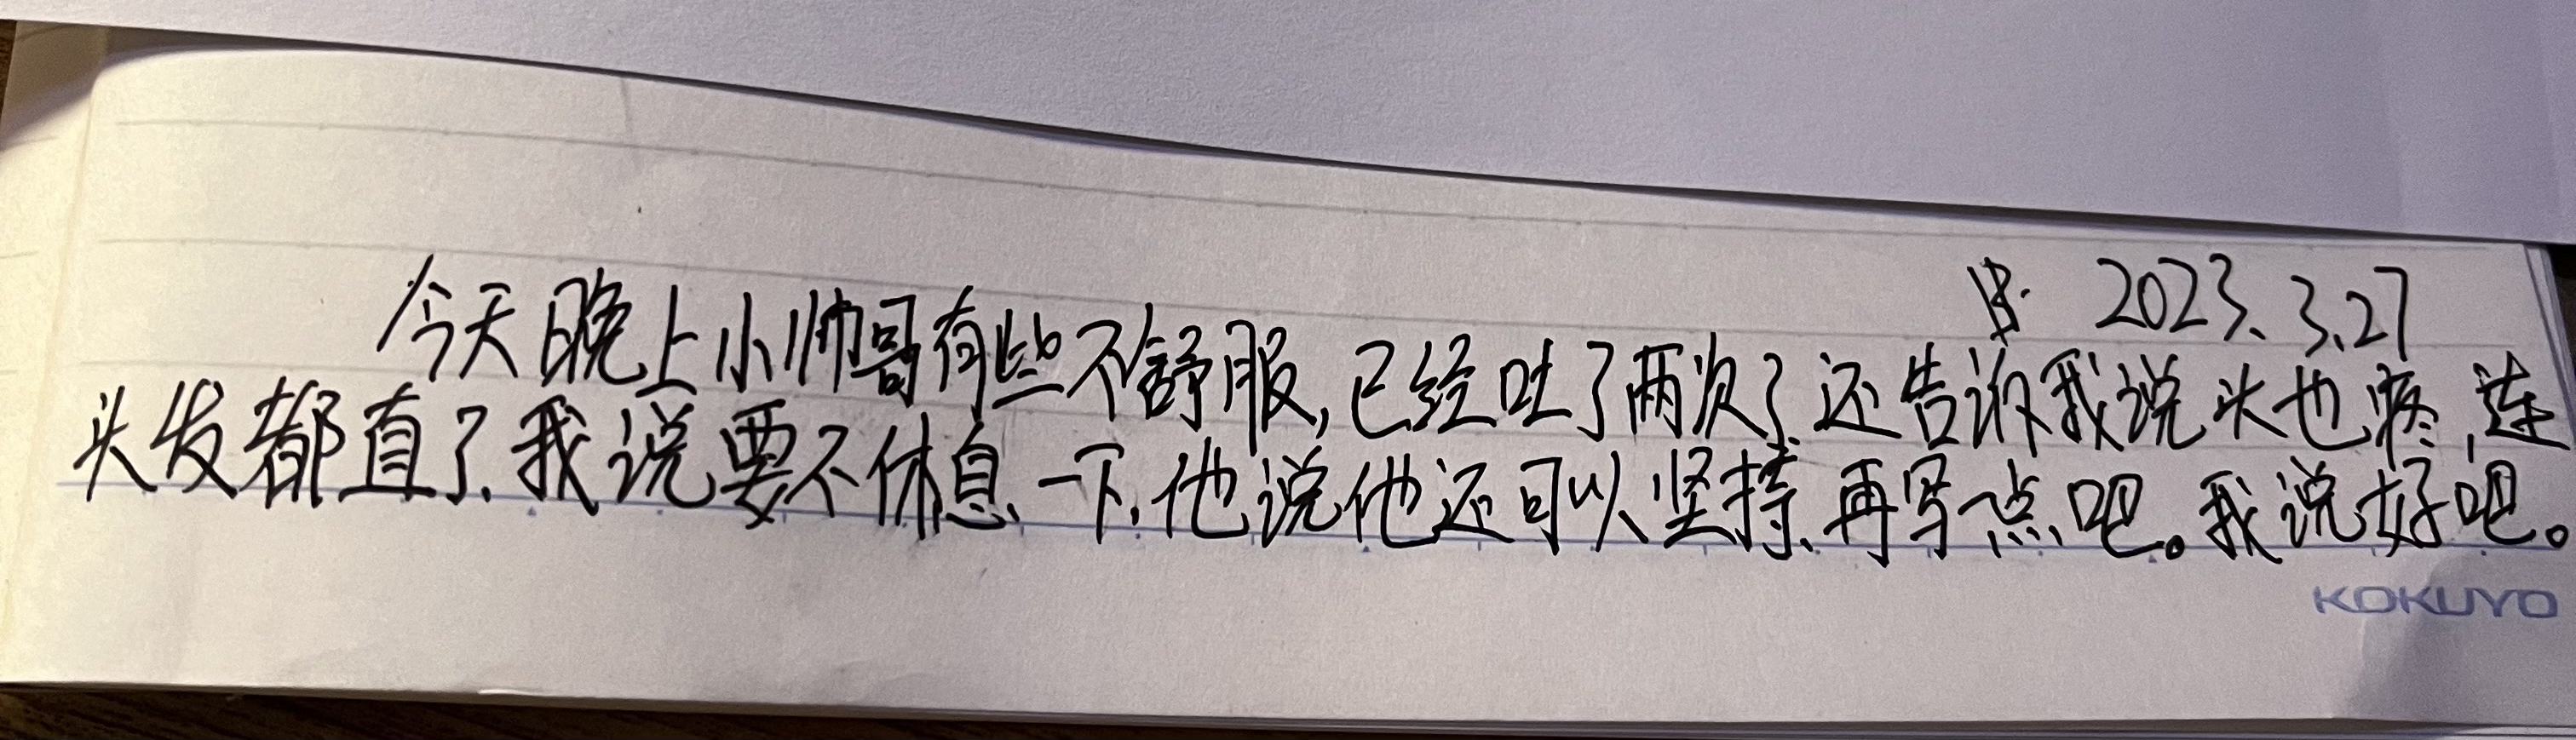 2023.3.27
今天晚上小帅哥有些不舒服,已经吐了两次了.还告诉我说头也疼,连
头发都直了.我说要不休息一下.他说他还可以坚持.再写一点吧。我说好吧。
KOKUYO